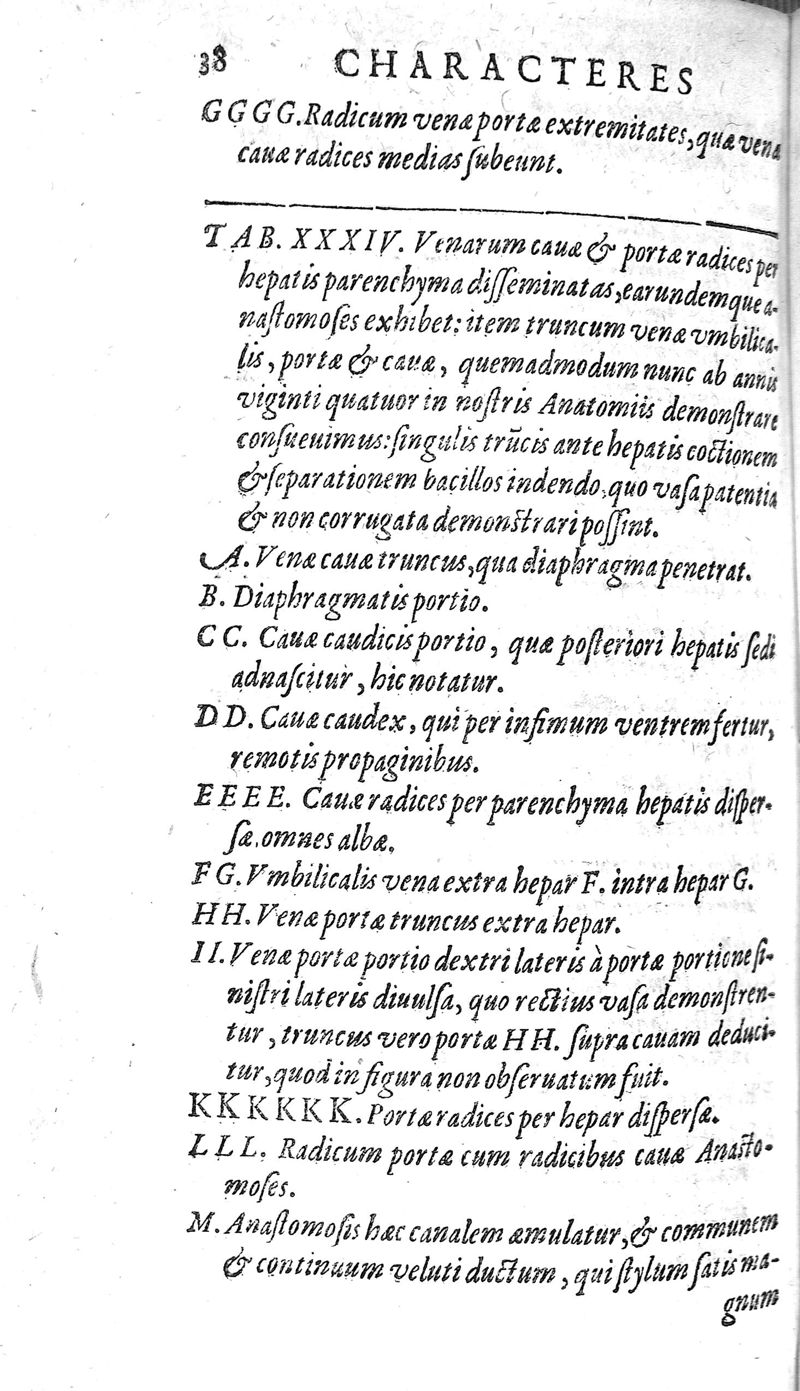 38 CHARACTERES
G G G G. Radicum venæ portæ extremitates, quæ venæ
cauæ radices medias ſubeunt.
TAB. XXXIV. Venarum cauæ & portæ radices per
hepatis parenchyma diſſeminatas, earundemque a-
naſtomoſes exhibet: item truncum venæ vmbilica-
lis, portæ & cauæ, quemadmodum nunc ab annis
viginti quatuor in noſtris Anatomiis demonſtrare
conſueuimus: ſingulis trūcis ante hepatis coctionem
& ſeparationem bacillos indendo, quo vaſa patentia
& non corrugata demonſtrari poſſint.
A. Venæ cauæ truncus, qua diaphragma penetrat.
B. Diaphragmatis portio.
C C. Cauæ caudicis portio, quæ poſteriori hepatis ſedi
adnaſcitur, hic notatur.
D D. Cauæ caudex, qui per infimum ventrem fertur,
remotis propaginibus.
E E E E. Cauæ radices per parenchyma hepatis diſper-
ſæ, omnes albæ.
F G. Vmbilicalis vena extra hepar F. intra hepar G.
H H. Venæ portæ truncus extra hepar.
I I. Venæ portæ portio dextri lateris à portæ portione ſi-
niſtri lateris diuulſa, quo rectius vaſa demonſtren-
tur, truncus vero portæ H H. ſupra cauam deduci-
tur, quod in figura non obſeruatum fuit.
K K K K K K. Portæ radices per hepar diſperſæ.
L L L. Radicum portæ cum radicibus cauæ Anaſto-
moſes.
M. Anaſtomoſis hæc canalem æmulatur, & communem
& continuum veluti ductum, qui ſtylum ſatis ma-
gnum